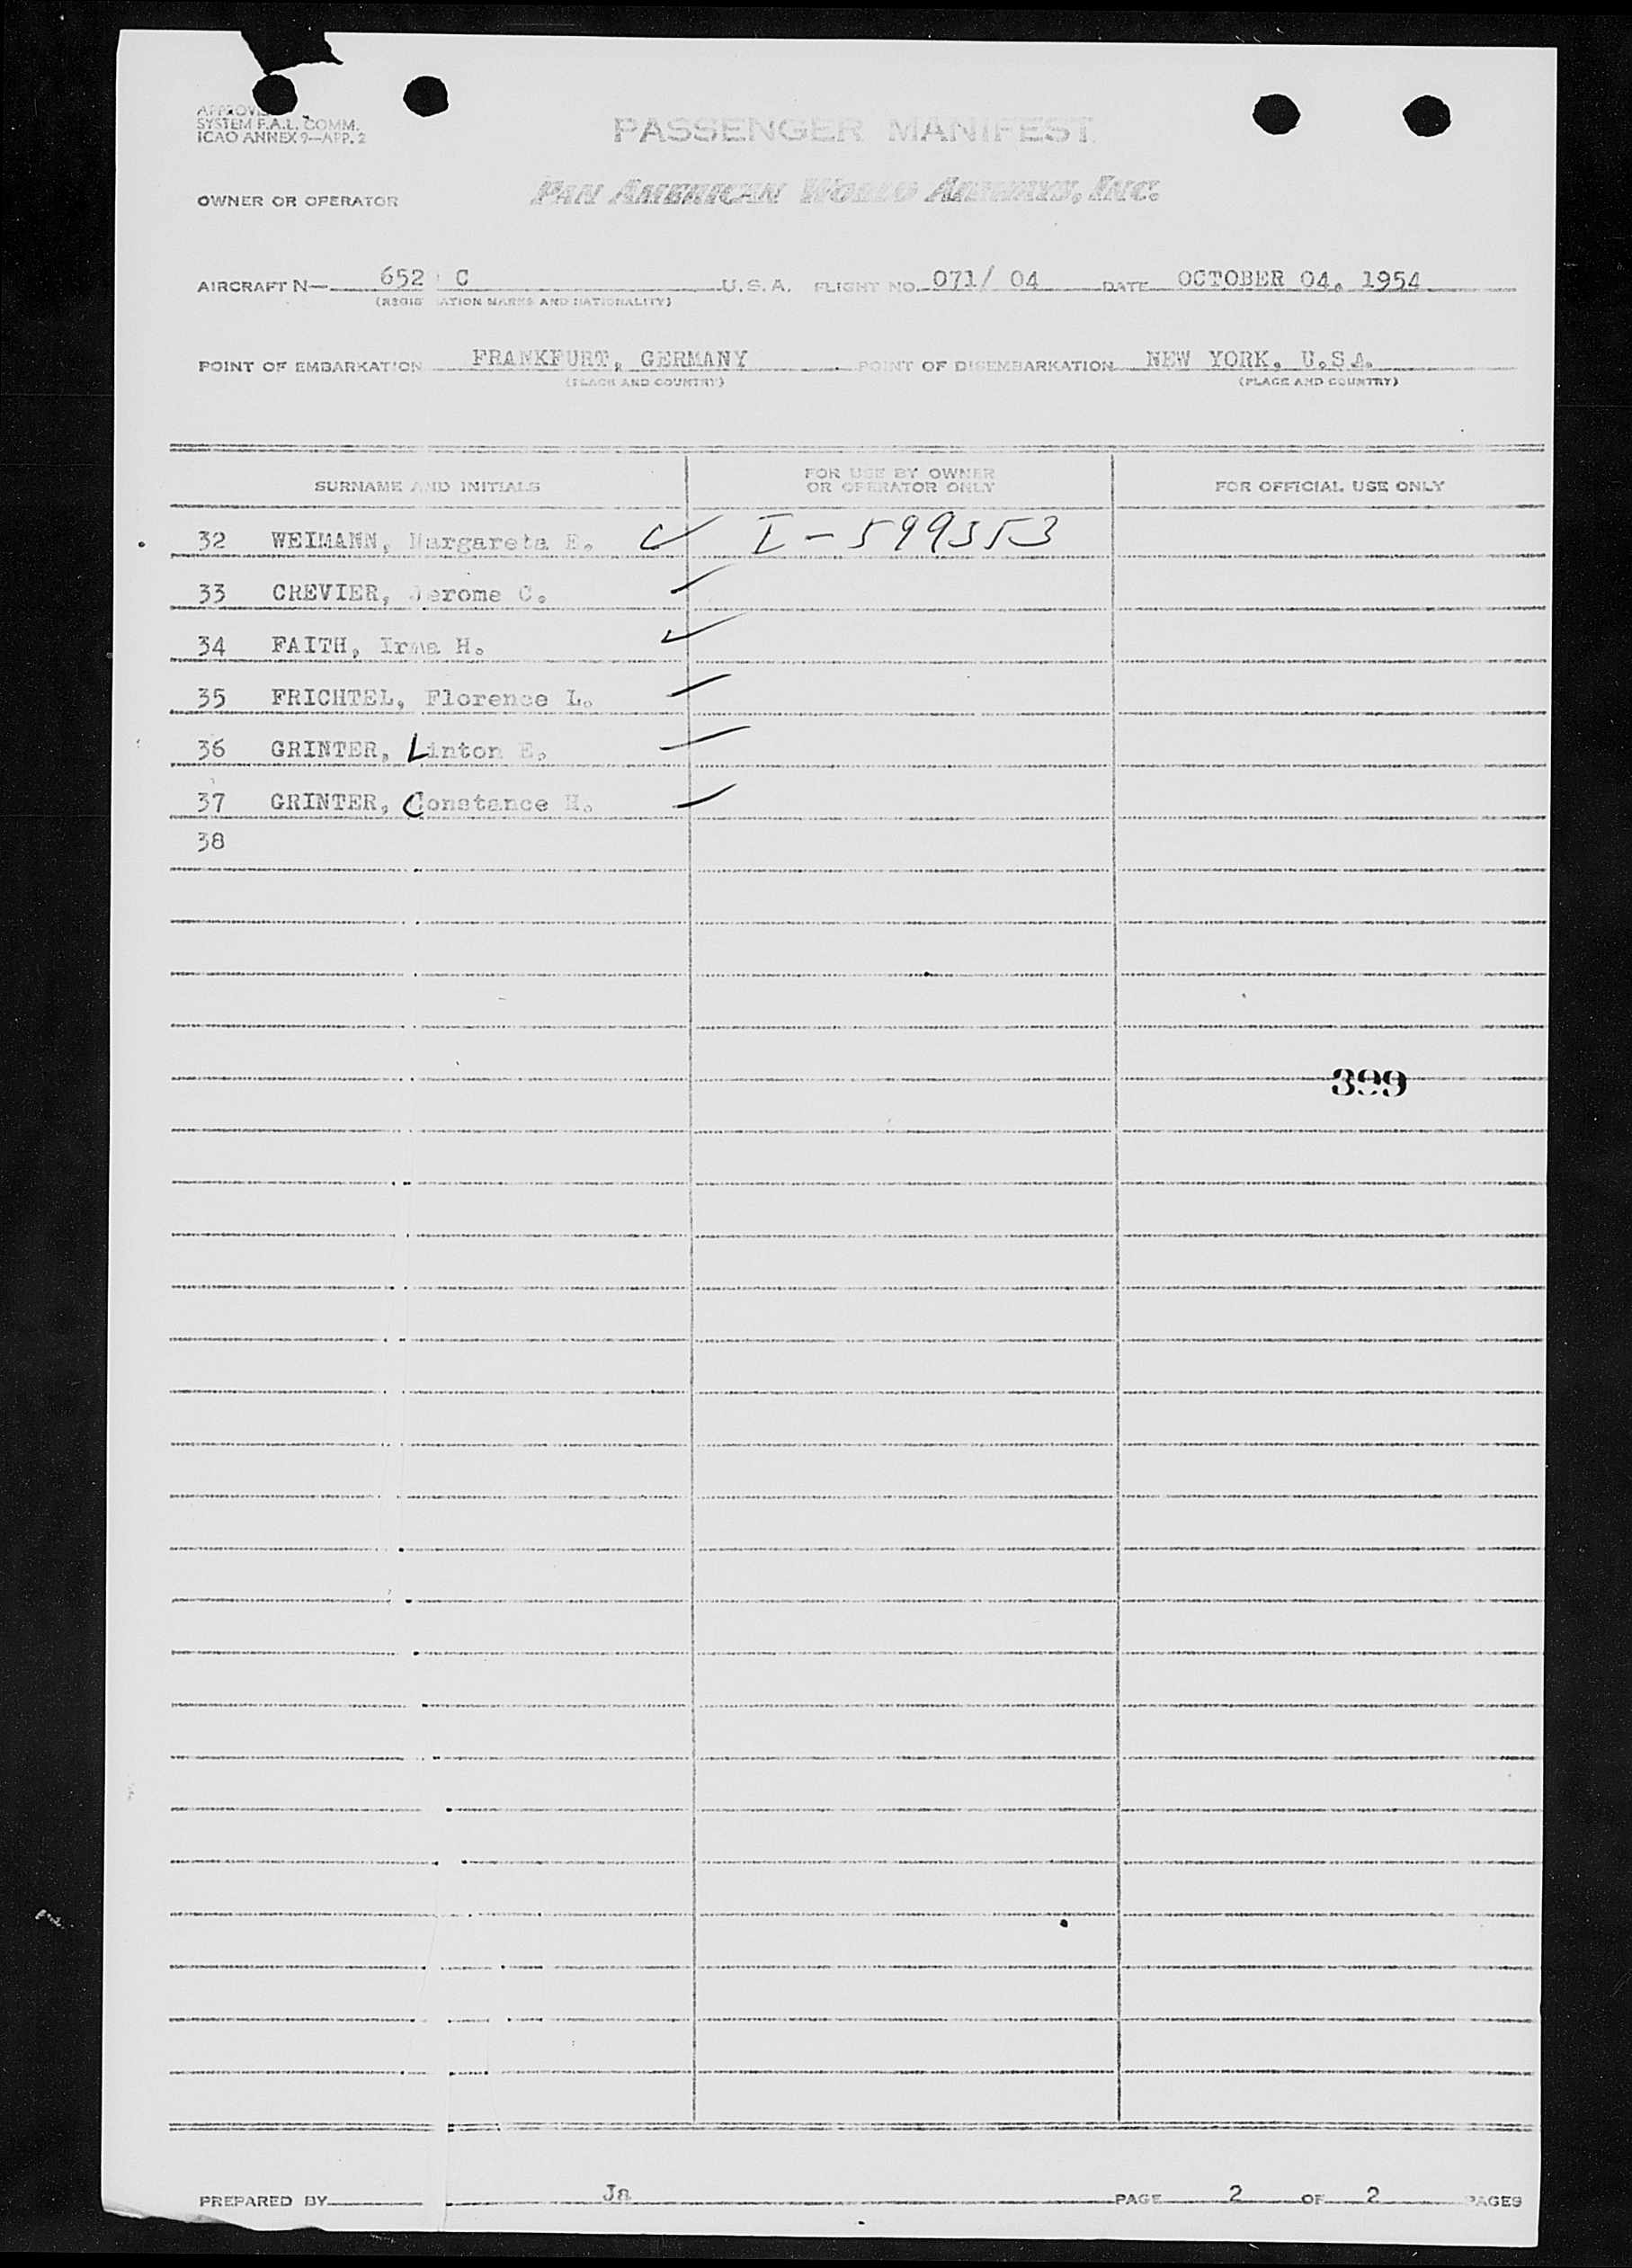 SYSTEM F.A.L. COMM.
ICAO ANNEX 9—APP. 2
PASSENGER MANIFEST
OWNER OR OPERATOR PAN AMERICAN WORLD AIRWAYS, INC.
AIRCRAFT N— 652 C U.S.A. FLIGHT NO. 071/ 04 DATE OCTOBER 04. 1954
(REGISTRATION MARKS AND NATIONALITY)
POINT OF EMBARKATION FRANKFURT, GERMANY POINT OF DISEMBARKATION NEW YORK. U.S.A.
(PLACE AND COUNTRY) (PLACE AND COUNTRY)
SURNAME AND INITIALS FOR USE BY OWNER OR OPERATOR ONLY FOR OFFICIAL USE ONLY
32 WEIMANN, Margareta E. ✓ I-599353
33 CREVIER, Jerome C. ✓
34 FAITH, Irma H. ✓
35 FRICHTEL, Florence L. ✓
36 GRINTER, Linton E. ✓
37 GRINTER, Constance H. ✓
38
399
PREPARED BY Ja PAGE 2 OF 2 PAGES